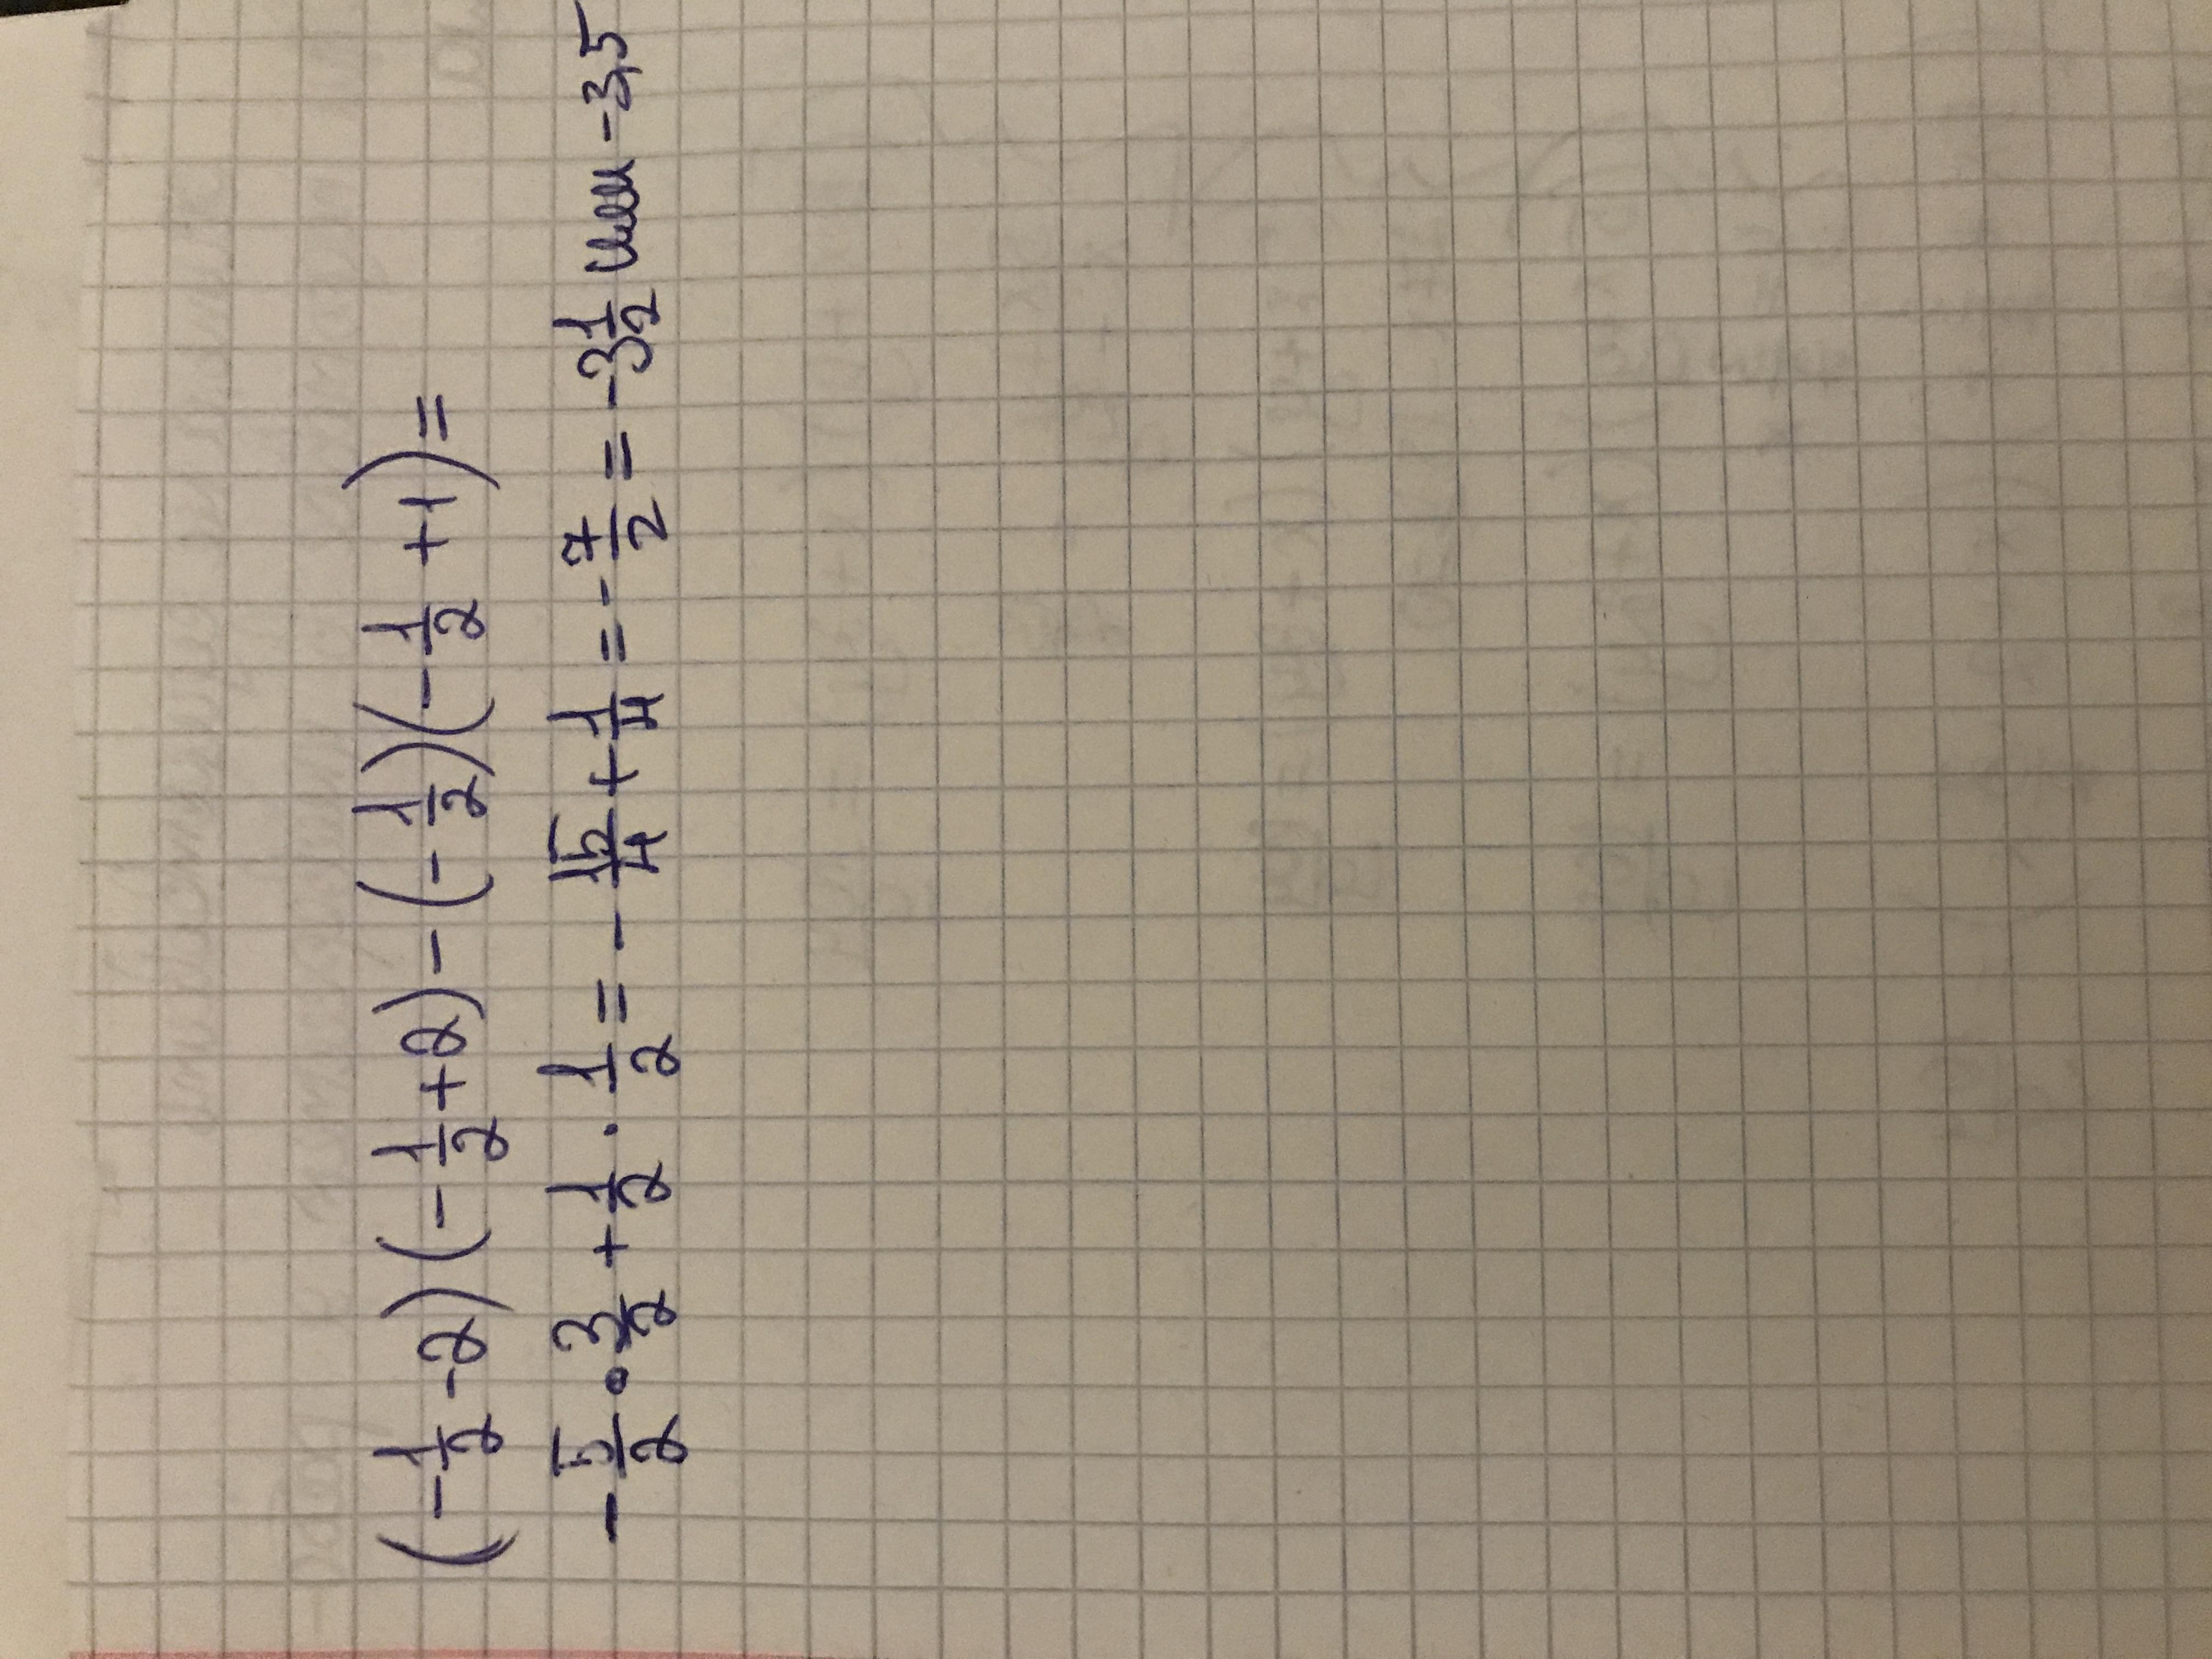 (-1/2 -2)(-1/2 +2) - (-1/2)(-1/2 +1) =
-5/2 · 3/2 + 1/2 · 1/2 = -15/4 + 1/4 = -7/2 = -3 1/2 или -3,5